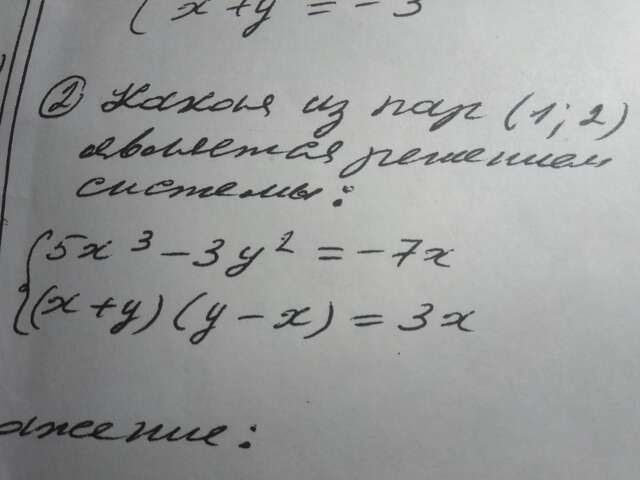 { x + y = -3
② Какая из пар (1; 2)
является решением
системы:
{ 5x³ - 3y² = -7x
(x + y) (y - x) = 3x
ажение: